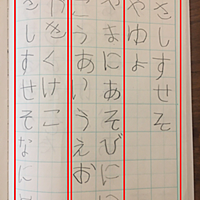 さしすせそ
やゆよ
やまにあそびに
こうあいうえお
かきくけこ
さしすせそなに